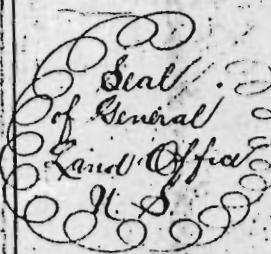 Seal
of General
Land Office
U S.